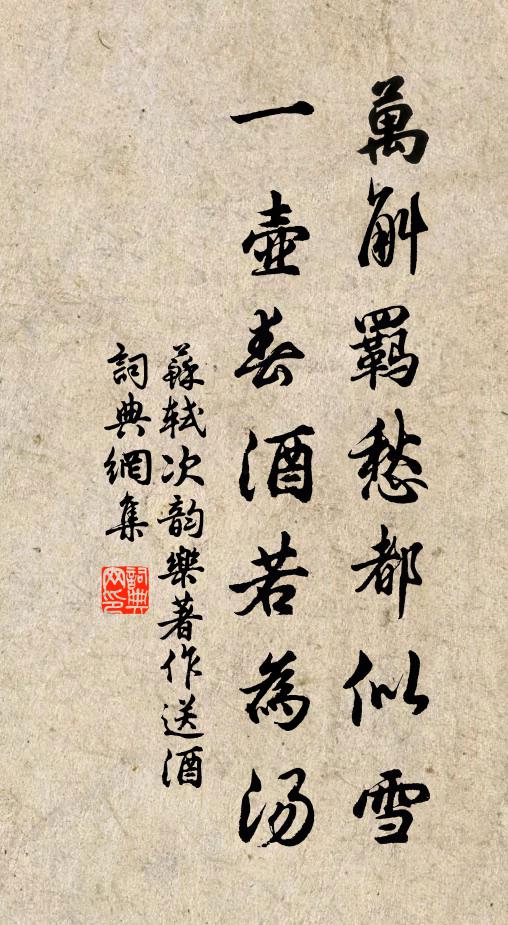 萬斛羈愁都似雪
一壺春酒若為湯
蘇軾次韵樂著作送酒
詞典網集
詞典
网印